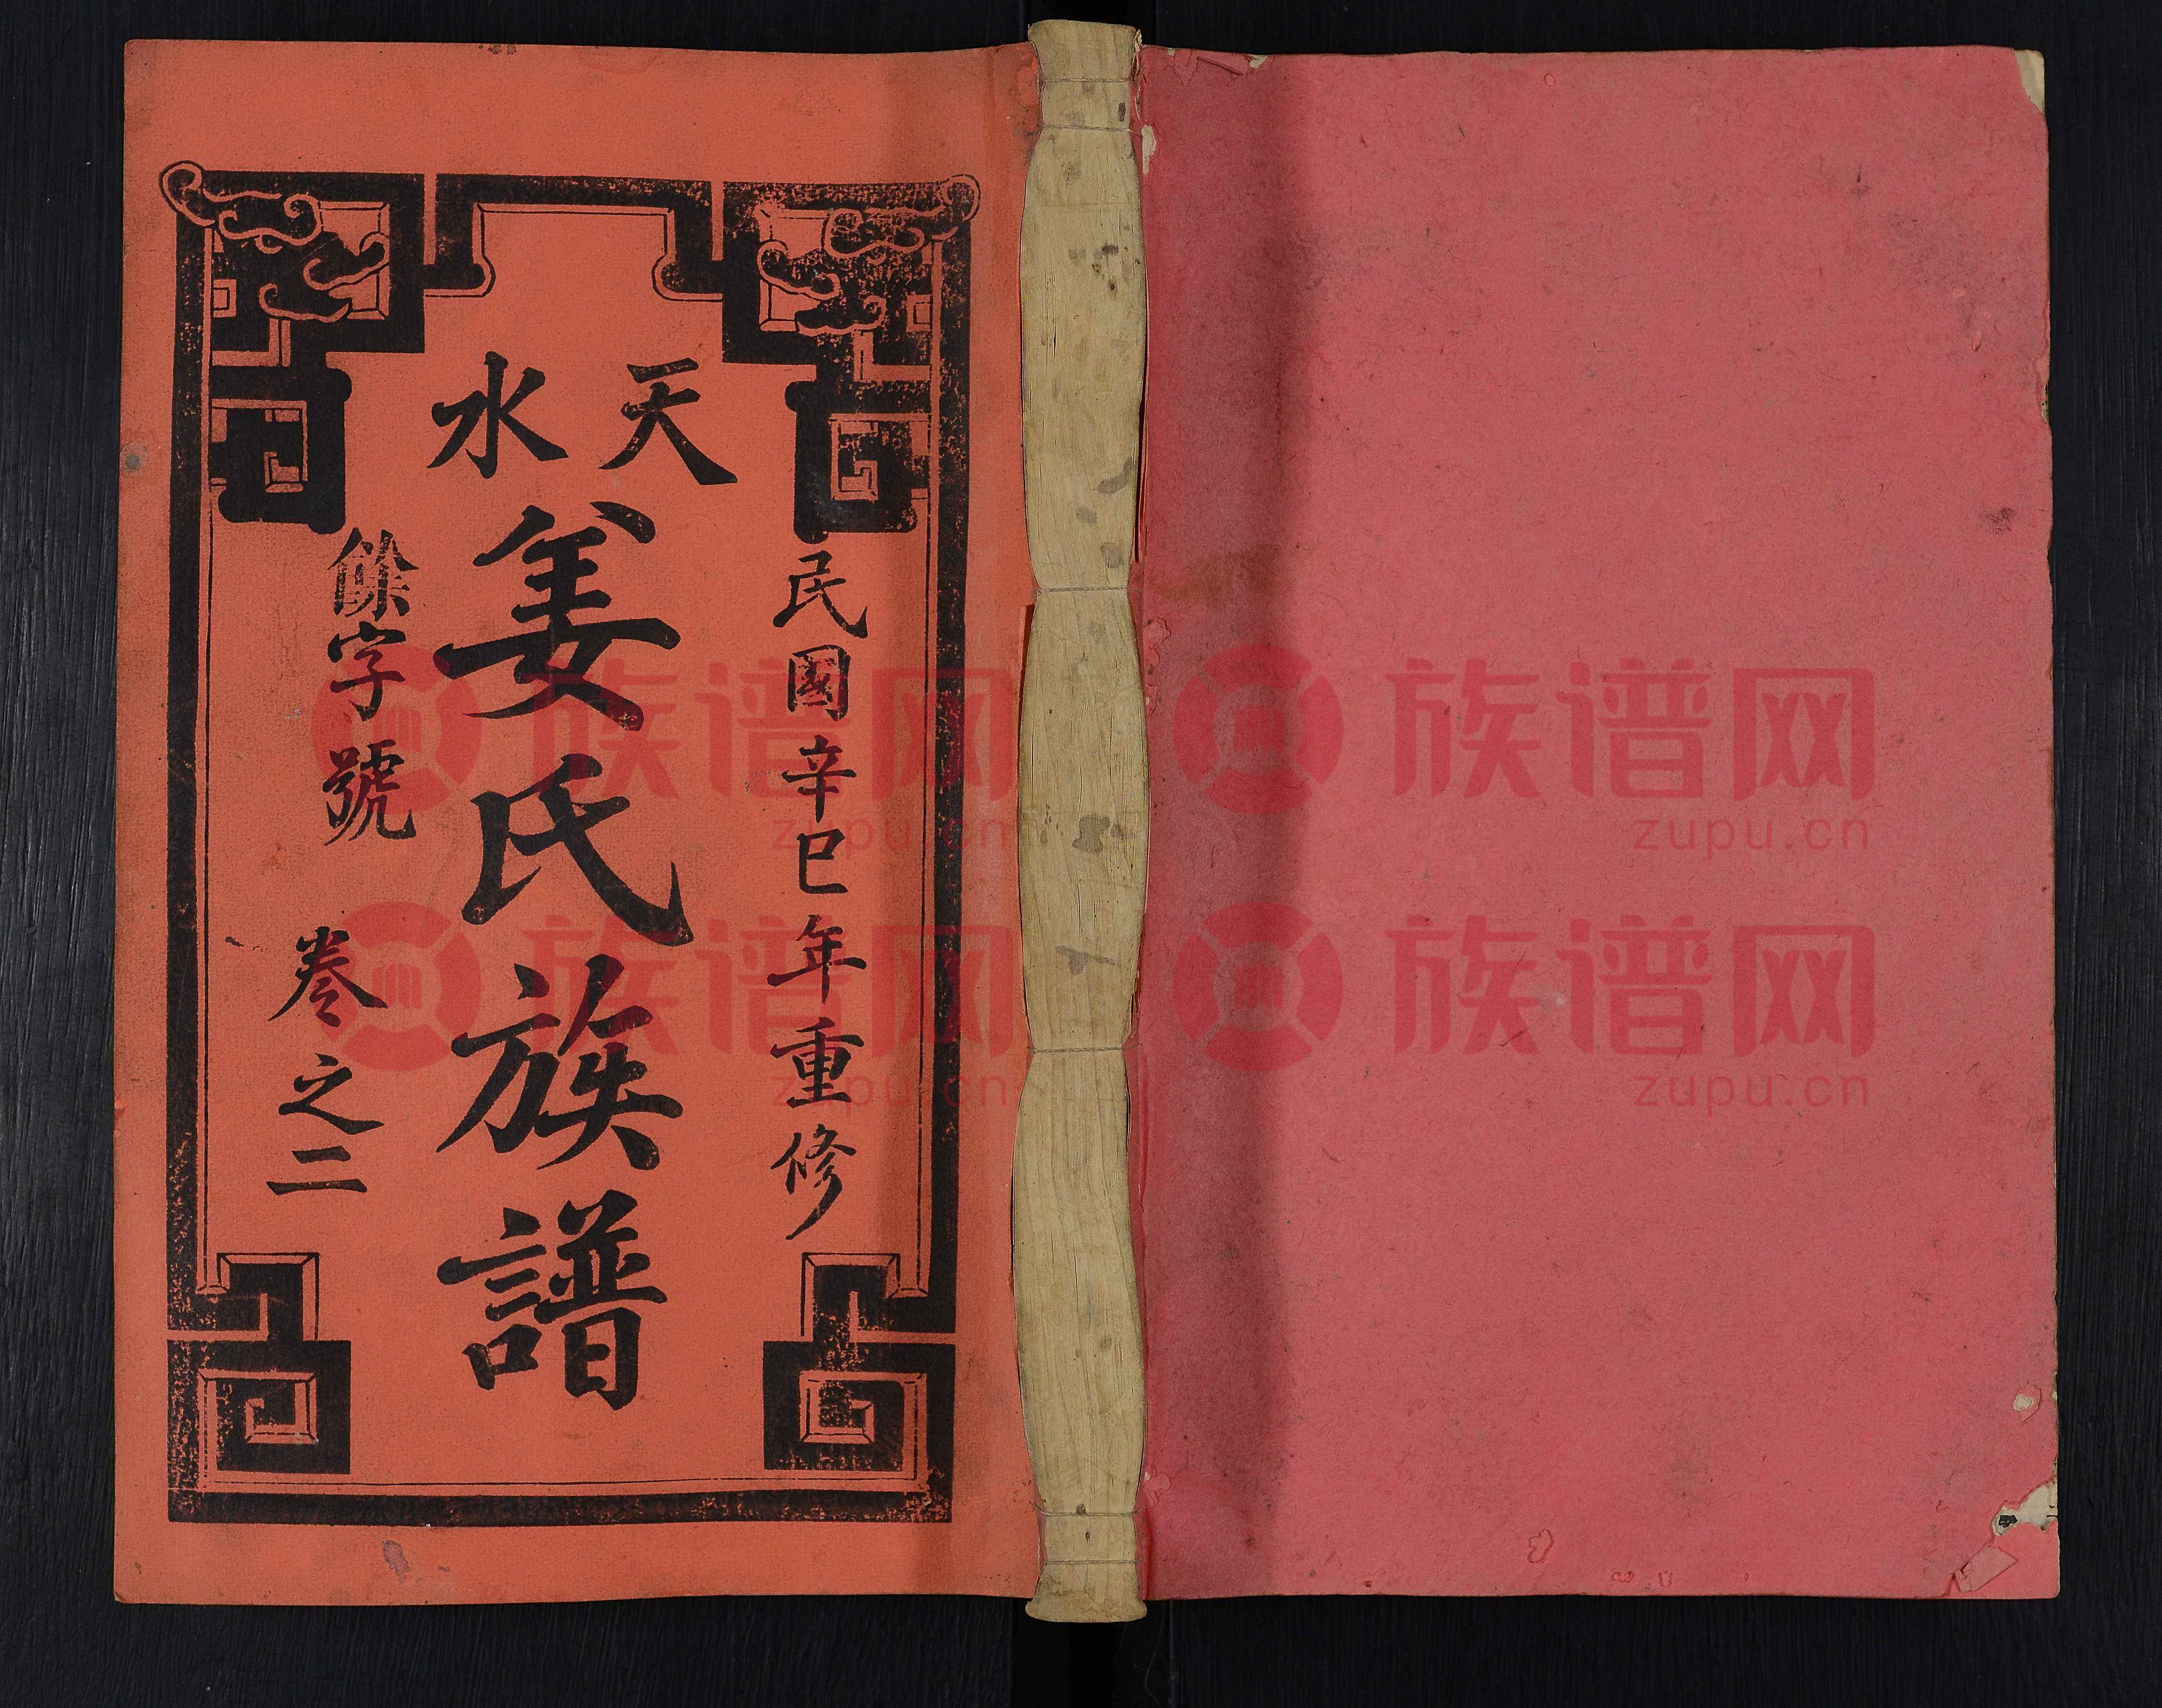 天水
民國辛巳年重修
姜氏族譜
餘字號
卷之二
族谱网
zupu.cn
族谱网
zupu.cn
族谱网
zupu.cn
族谱网
zupu.cn